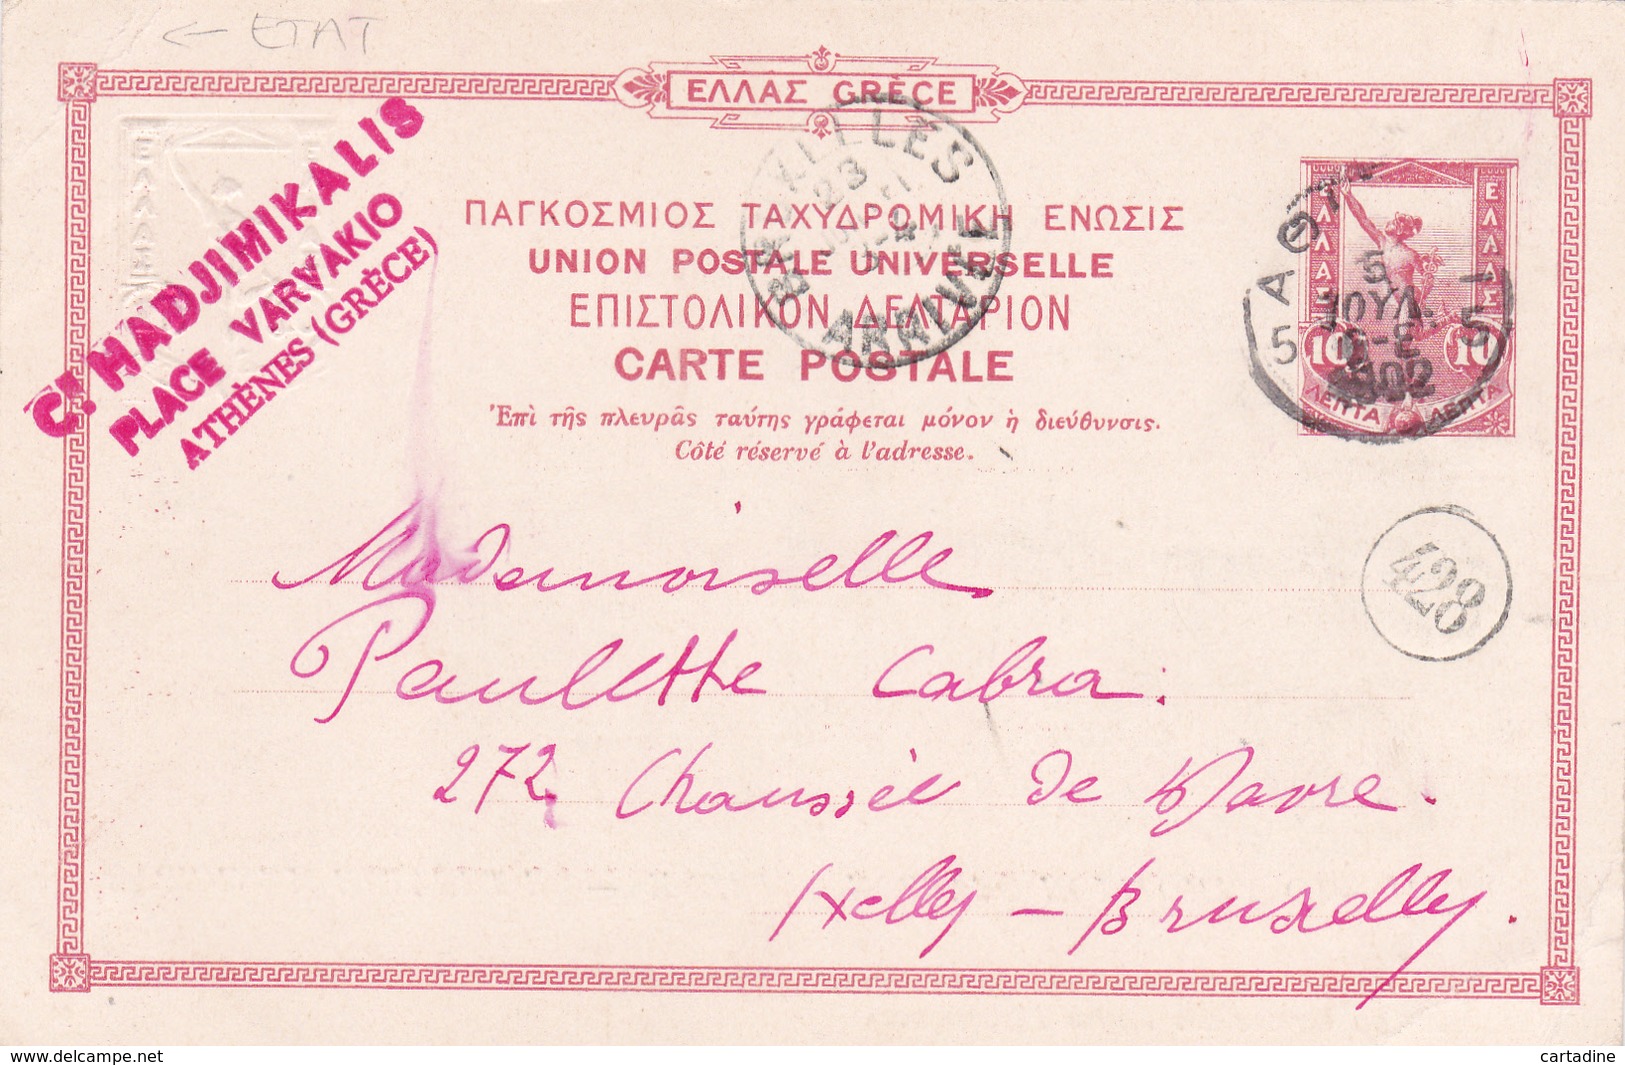 ← ETAT
ΕΛΛΑΣ GRÈCE
C! HADJIMIKALIS
PLACE VARVAKIO
ATHÈNES (GRÈCE)
ΕΛΛΑΣ
BRUXELLES
23
ARRIVÉE
ΠΑΓΚΟΣΜΙΟΣ ΤΑΧΥΔΡΟΜΙΚΗ ΕΝΩΣΙΣ
UNION POSTALE UNIVERSELLE
ΕΠΙΣΤΟΛΙΚΟΝ ΔΕΛΤΑΡΙΟΝ
CARTE POSTALE
Ἐπὶ τῆς πλευρᾶς ταύτης γράφεται μόνον ἡ διεύθυνσις.
Côté réservé à l'adresse.
ΕΛΛΑΣ ΕΛΛΑΣ
10 10
ΛΕΠΤΑ ΛΕΠΤΑ
5
ΙΟΥΛ.
5 5
428
Mademoiselle
Paulette Cabra.
272 Chaussée de Wavre.
Ixelles – Bruxelles.
delcampe.net
cartadine